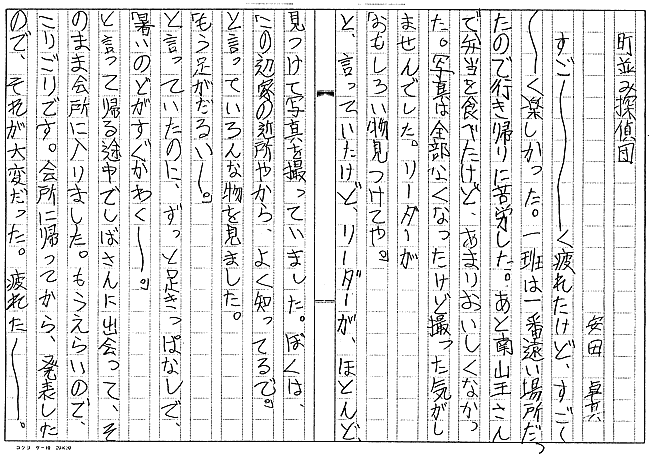 町並み探偵団
安田 卓矢
すご〜〜〜〜く疲れたけど、すご〜
〜〜く楽しかった。一班は一番遠い場所だっ
たので行き帰りに苦労した。あと南山王さん
で弁当を食べたけど、あまりおいしくなかっ
た。写真は全部なくなったけど撮った気がし
ませんでした。リーダーが
「おもしろい物見つけてや。」
と、言っていたけど、リーダーが、ほとんど、
見つけて写真を撮っていました。ぼくは、
「この辺家の近所やから、よく知ってるで。」
と言っていろんな物を見ました。
「もう足がだるい〜。」
と言っていたのに、ずっと足きっぱなしで、
「暑いのどがすぐかわく〜〜。」
と言って帰る途中でしばさんに出会って、そ
のまま会所に入りました。もうえらいので、
こりごりです。会所に帰ってから、発表した
ので、それが大変だった。疲れた〜〜〜。
コクヨ ケ-10 20×20